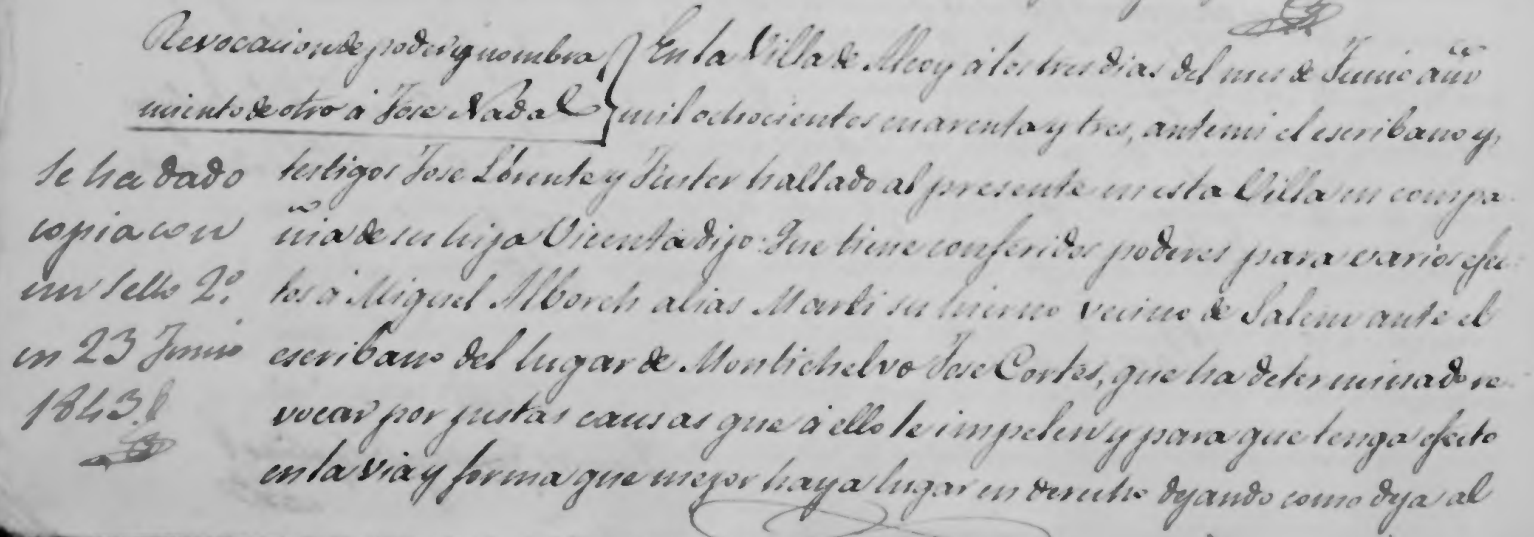 Revocacion de poder y nombra
miento de otro á Jose Nadal
Se ha dado
copia con
un sello 2º.
en 23 Junio
1843.
En la Villa de Alcoy á los tres dias del mes de Junio año
mil ochocientos cuarenta y tres, ante mi el escribano y
testigos Jose Llorente y Fuster hallado al presente en esta Villa en compa
ñia de su hija Vicenta dijo: Que tiene conferidos poderes para varios efec
tos á Miguel Alborch alias Marti su hierno vecino de Salem ante el
escribano del lugar de Montichelvo Jose Cortes, que ha determinado re
vocar por justas causas que á ello le impelen y para que tenga efecto
en la via y forma que mejor haya lugar en derecho dejando como deja al